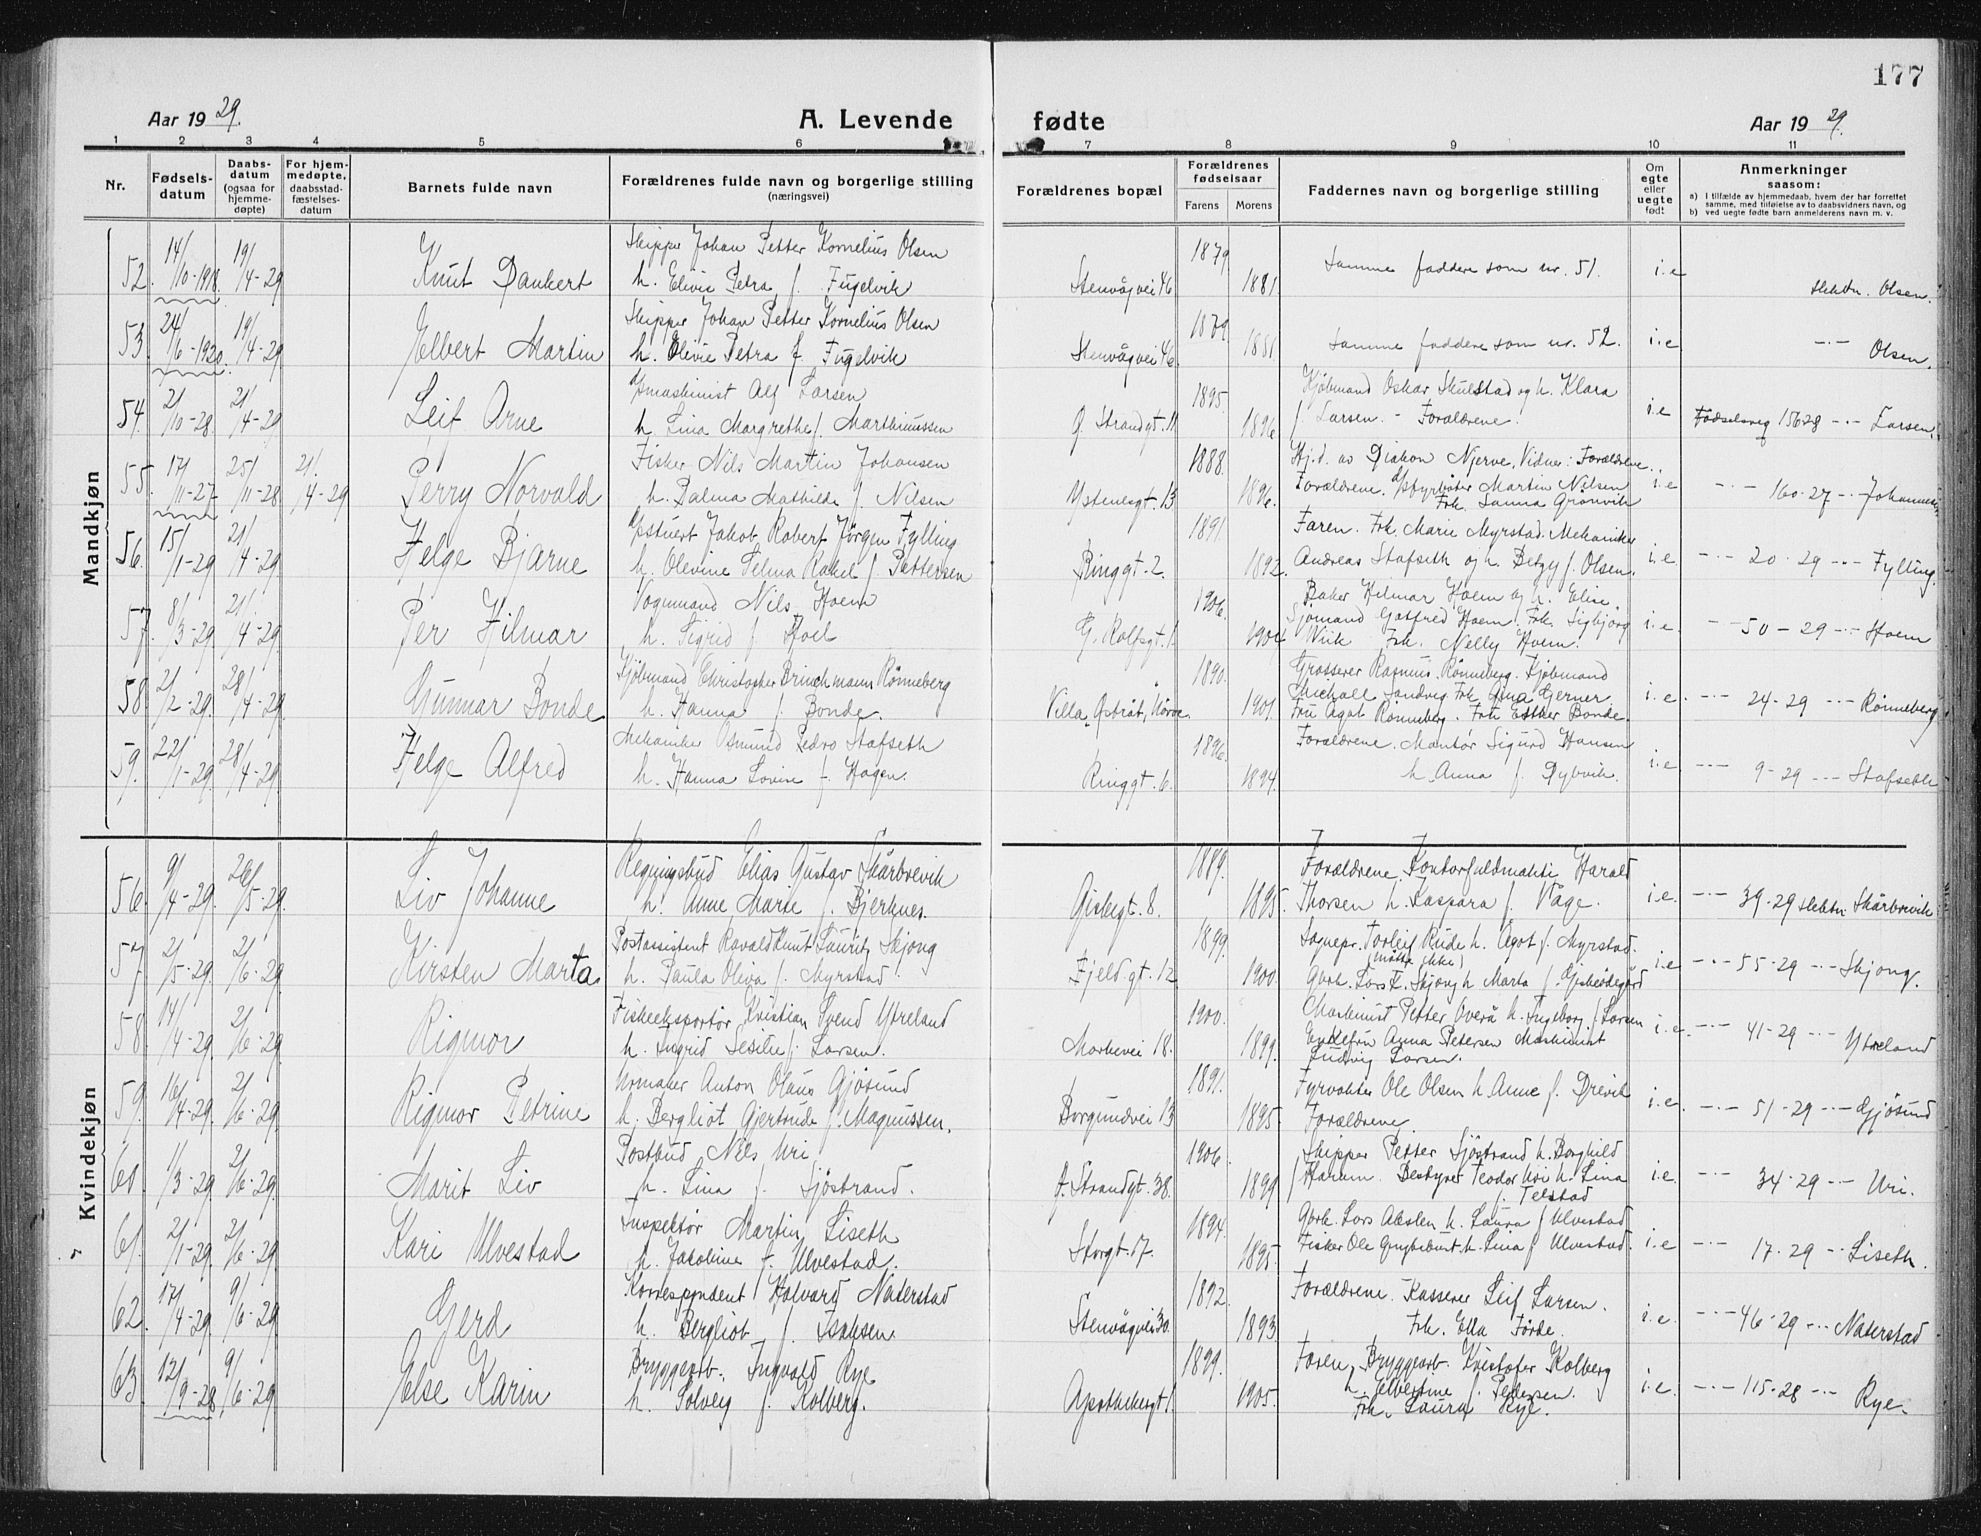 177
Aar 1929.
A. Levende fødte
Aar 1929.
1 2 3 4 5 6 7 8 9 10 11
Nr.
Fødsels-
datum
Daabs-
datum
(ogsaa for
hjemme-
døpte)
For hjem-
medøpte,
daabsstad-
fæstelses-
datum
Barnets fulde navn
Forældrenes fulde navn og borgerlige stilling
(næringsvei)
Forældrenes bopæl
Forældrenes
fødselsaar
Farens Morens
Faddernes navn og borgerlige stilling
Om
egte
eller
uegte
født
Anmerkninger
saasom:
a) I tilfælde av hjemmedaab, hvem der har forrettet
samme, med tilføielse av to daabsvidners navn, og
b) ved uegte fødte barn anmelderens navn m. v.
Mandkjøn
52. 14/10-1918. 19/4-29 Knut Dankert
Skipper Johan Petter Kornelius Olsen
h. Elivie Petra f. Fugelvik
Stenvågvei 46 1879. 1881. Samme faddere som nr. 51. i.e
Slektsn. Olsen.
53. 24/6-1920. 19/4-29 Elbert Martin
Skipper Johan Petter Kornelius Olsen
h. Olivie Petra f. Fugelvik
Stenvågvei 46. 1879. 1881. Samme faddere som nr. 52. i.e
-"- Olsen.
54. 2/10-28. 21/4-29 Leif Arne
maskinist Alf Larsen
h. Lina Margrethe f. Marthinussen
Ø. Strandgt. 11 1895. 1896
Kjøbmand Oskar Skulstad og h. Klara
f. Larsen. - Forældrene. i.e
Fødselsreg 156-28 -"- Larsen.
55. 17/11-27 25/11-28 21/4-29 Perry Norvald
Fisker Nils Martin Johansen
h. Palma Mathilde f. Nilsen
Ystenesgt. 13 1888. 1896.
Hj.d. av Diakon Njerve. Vidner: Forældrene.
Forældrene. Styrbåter Martin Nilsen
Frk. Sanna Grønvik i.e
-"- 160-27 -"- Johannesen
56. 15/1-29 21/4-29 Helge Bjarne
Stuert Jakob Robert Jørgen Fylling
h. Olevine Selma Rakel f. Pettersen
Ringgt. 2. 1891. 1892.
Faren. Frk. Marie Myrstad. Mekaniker
Andreas Stafseth og h. Betzy f. Olsen. i.e
-"- 20-29 -"- Fylling.
57. 8/3-29 21/4-29 Per Hilmar
Vognmand Nils Hoem
h. Sigrid f. Hoel
G. Rolfsgt. 1. 1906. 1904
Baker Hilmar Hoem og h. Elise.
Sjømand Gotfred Hoem. Frk. Sigbjørg
Wiik Frk. Nelly Hoem. i.e.
-"- 50-29 -"- Hoem
58. 2/2-29. 28/4-29. Gunnar Bonde
Kjøbmand Christopher Brinchmann Rønneberg
h. Hanna f. Bonde.
Villa "Østråt", Nørve. 1890. 1901.
Grosserer Rasmus Rønneberg. Kjøbmand
Michall Sandvig. Frk. Anna Gerner
Fru Agot Rønneberg. Frk. Esther Bonde. i.e.
-"- 24-29 -"- Rønneberg
59. 22/1-29. 28/4-29. Helge Alfred
Mekaniker Osmund Pedro Stafseth
h. Hanna Lovise f. Hagen.
Ringgt. 6. 1896. 1894.
Forældrene. Montør Sigurd Hansen
h. Anna f. Dybvik. i.e.
-"- 9-29 -"- Stafseth
Kvindekjøn
56. 9/4-29. 26/5-29. Liv Johanne
Regningsbud Elias Gustav Skårbrevik
h. Anne Marie f. Bjerknes.
Giskegt. 8. 1889. 1895.
Forældrene. Kontorfuldmekti Harald
Thorsen h. Kaspara f. Våge. i.e.
-"- 39-29 Slektn. Skårbrevik
57. 2/5-29. 2/6-29. Kirsten Marta
Postassistent Ravald Knut Laurits Skjong
h. Paula Oliva f. Myrstad
Fjeldgt. 12 1899. 1900.
Sognepr. Torleif Rude h. Agot f. Myrstad.
(møtte ikke)
Gbrk. Lars T. Skjong h. Marta f. Giskeødegård i.e
-"- 55-29 -"- Skjong.
58. 14/4-29. 2/6-29. Rigmor
Fiskeeksportør Kristian Svend Ytreland
h. Ingrid Sesilie f. Larsen.
Morkevei 18. 1900. 1899.
Maskinist Petter Overå h. Ingeborg f. Larsen
Enkefru Anna Petersen Maskinist
Ludvig Larsen. i.e.
-"- 41-29 -"- Ytreland
59. 16/4-29. 2/6-29. Rigmor Petrine
Urmaker Anton Olaus Gjøsund
h. Bergliot Gjertrude f. Magnussen.
Borgundvei 13 1891. 1895.
Fyrvokter Ole Olsen h. Anne f. Drevik
Forældrene. i.e.
-"- 51-29 -"- Gjøsund
60. 1/3-29 2/6-29. Marit Liv
Postbud Nils Uri
h. Lina f. Sjøstrand.
Ø. Strandgt. 38. 1906. 1899
Skipper Petter Sjøstrand h. Borghild
f. Harum. Bestyrer Teodor Uri h. Lina
f. Telstad i.e.
-"- 34-29 -"- Uri.
61. 2/1-29. 2/6-29. Kari Ulvestad
Inspektør Martin Liseth
h. Jakobine f. Ulvestad.
Storgt. 17. 1894. 1895.
Gbrk. Lars Aksln h. Laura f. Ulvestad
Fisker Ole h. Lina f. Ulvestad. i.e
-"- 17-29 -"- Liseth.
62. 17/4-29. 9/6-29. Gerd
Korrespondent Halvard Naterstad
h. Bergliot f. Isaksen.
Stenvågvei 30. 1892. 1893
Forældrene. Kasserer Leif Larsen.
Frk. Ella Førde. i.e.
-"- 46-29 -"- Naterstad
63. 12/9-28. 9/6-29 Else Karin
Bryggearb. Ingvald Rye
h. Solveig f. Kolberg.
Apothekergt 1. 1899. 1905.
Faren, Bryggearb. Kristofer Kolberg
h. Elbertine f. Pedersen.
Frk. Laura Rye. i.e.
-"- 115-28 -"- Rye.